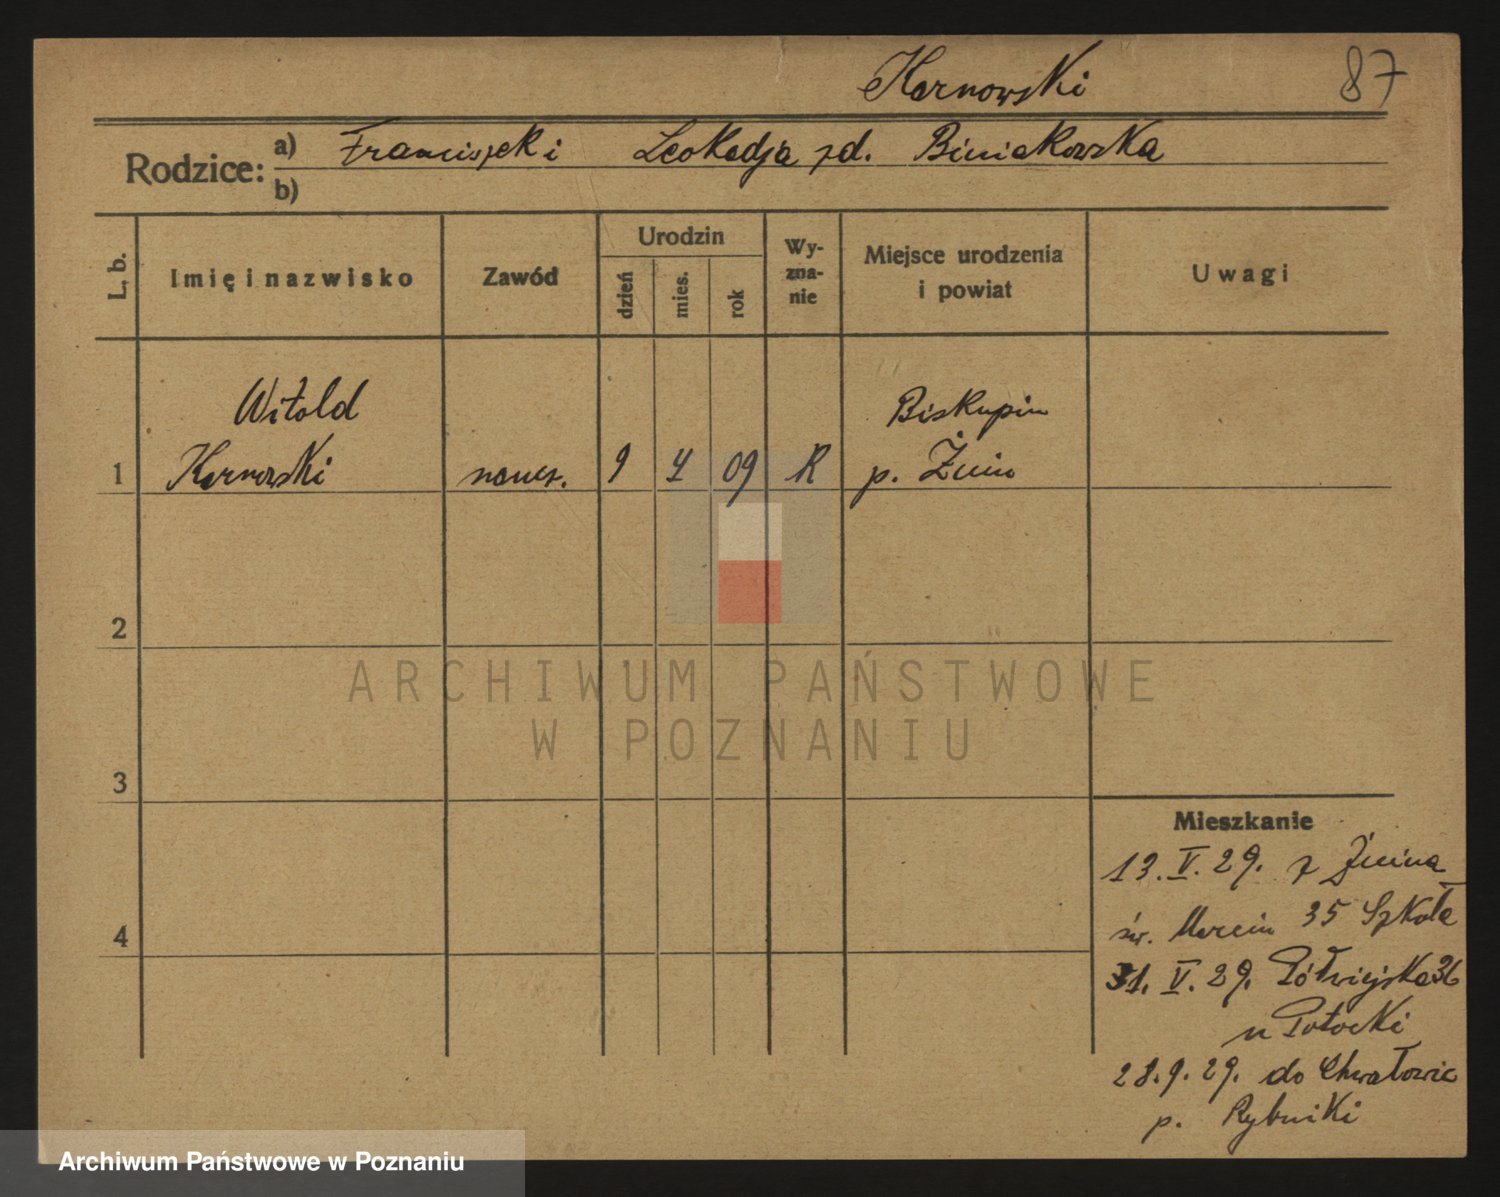 Kornowski 87
Rodzice: a) Franciszek i Leokadja zd. Biniakowska
b)
L. b. Imię i nazwisko Zawód Urodzin dzień mies. rok Wy-zna-nie Miejsce urodzenia i powiat Uwagi
Witold Biskupin
1 Kornowski naucz. 9 4 09 R p. Żnin
2
ARCHIWUM PAŃSTWOWE
W POZNANIU
3
Mieszkanie
13. V. 29. z Żnina
św. Marcin 35 Szkoła
4
31. V. 29. Półwiejska 36
u Potocki
28. 9. 29. do Chwałowic
p. Rybniki
Archiwum Państwowe w Poznaniu